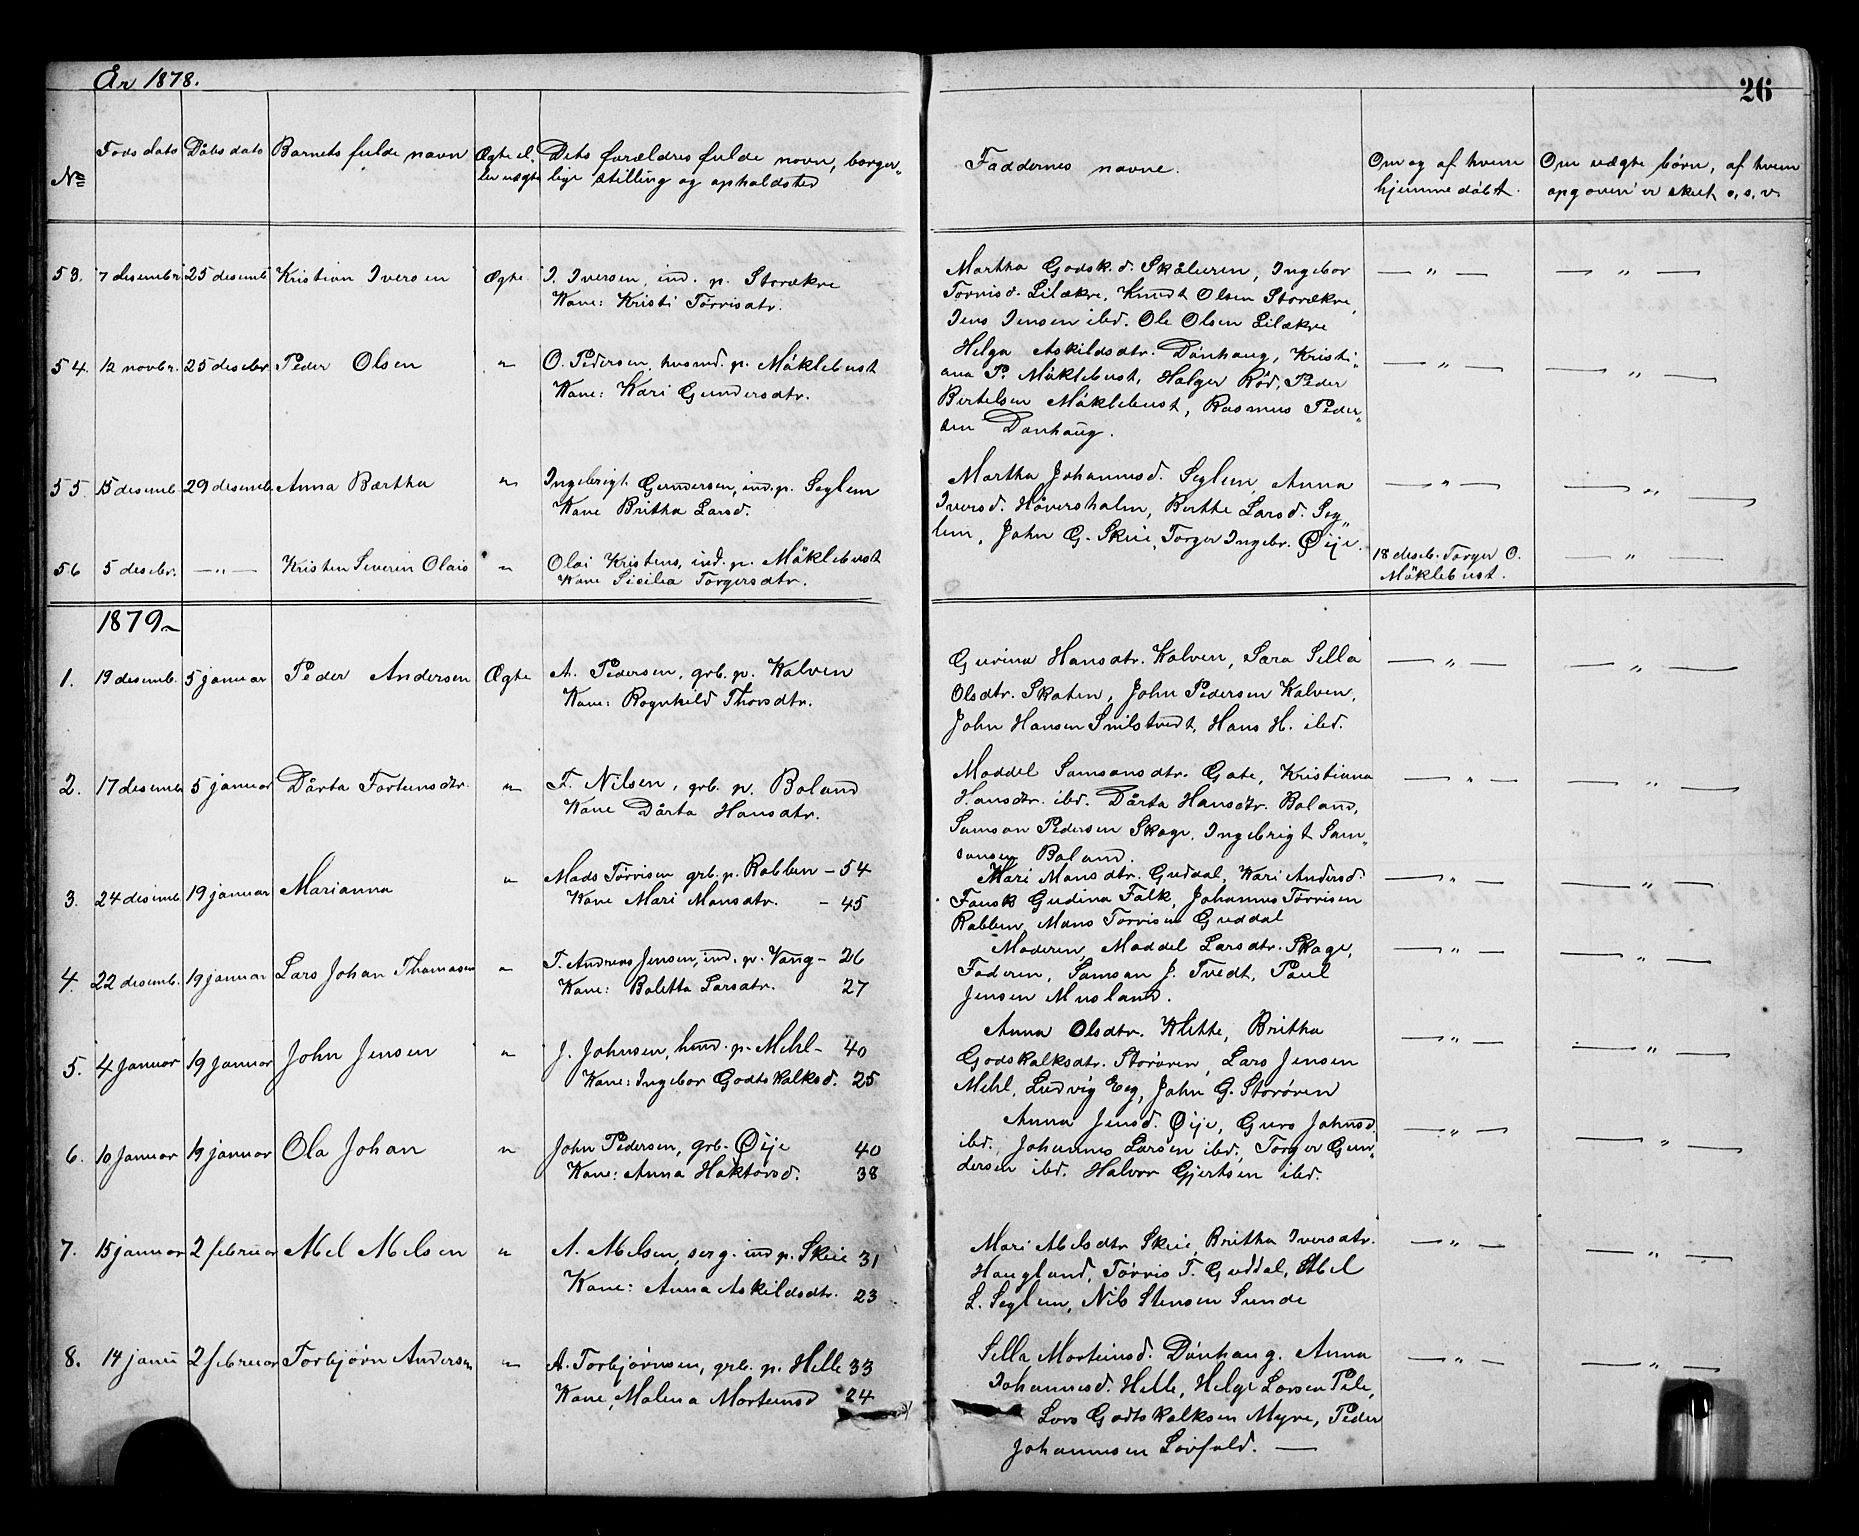 År 1878.
26
No
Føds dato
Dåbs dato
Barnets fulde navn
Ægte el.
ler uægte
Dets forældres fulde navn, borger„
lige stilling og opholdsted
Faddernes navne.
Om og af hvem
hjemmedøbt.
Om uægte børn, af hvem
opgaven er skeet o, s, v.
53. 7 desembr 25 desemb Kristian Iversen Ægte I. Iversen, ind. p. Storækre
Kone: Kristi Tørrisdtr.
Martha Godsk.d. Skåluren, Ingebor
Torrisd. Lilækre, Knudt Olsen Storækre,
Jens Jensen ibd. Ole Olsen Lilækre
— „ — — „ —
54. 12 novbr. 25 desebr. Peder Olsen „ O. Pedersen, husmd. p. Mäklebust
Kone: Kari Gundersdtr.
Helga Askildsdtr. Dønhaug, Kristi„
ana P. Mäklebust, Holger Rød, Peder
Bertelsen Mäklebust, Rasmus Peder„
sen Dønhaug.
— „ — — „ —
55. 15 desemb. 29 desemb. Anna Bærtha „ Ingebrigt Gundersen, ind. p. Seglem
Kone Britha Larsd.
Martha Johannesd. Seglem, Anna
Iversd. Håversholm, Berthe Larsd. Seg„
lem, John G. Skeie, Torger Ingebr. Øije.
— „ — — „ —
56 5 desebr. — „ — Kristen Severin Olais „ Olai Kristens, ind. p. Mäklebust
Kone Sicilia Torgersdtr.
18 deseb. Torger O.
Mäklebust.
— „ —
1879
1. 19 desemb. 5 januar Peder Andersen Ægte A. Pedersen, grb. p. Kalven
Kone: Rognhild Thorsdtr.
Gurina Hansdtr. Kalven, Sara Sella
Olsdtr. Skaten, John Pedersen Kalven,
John Hansen Snilstvedt, Hans H. ibd.
— „ — — „ —
2. 17 desemb. 5 januar Dårta Fortunsdtr. „ F. Nilsen, grb. p. Boland
Kone Dårta Hansdtr.
Maddel Samsonsdtr. Gate, Kristiana
Hansdtr. ibd. Dårta Hansdtr. Boland,
Samson Pedersen Skage, Ingebrigt Sam„
sonsen Boland.
— „ — — „ —
3. 24 desemb. 19 januar Marianna „ Mads Tørrisen grb. p. Robben – 54
Kone Mari Monsdtr. – 45
Mari Monsdtr. Guddal, Kari Andersd.
Fausk Gudina Falk, Johannes Tørrisen
Robben, Mons Tørrisen Guddal
— „ — — „ —
4. 22 desemb. 19 januar Lars Johan Thomasen „ T. Andreas Jensen, ind. p. Vang – 26
Kone: Boletta Larsdtr. 27
Moderen, Maddel Larsdtr. Skage,
Faderen, Samson J. Tvedt, Paul
Jensen Musland.
— „ — — „ —
5. 4 januar 19 januar John Jensen „ J. Johnsen, husmd. p. Mehl – 40
Kone: Ingebor Godtskalksd. 25
Anna Olsdtr. Klette, Britha
Godskalksdtr. Storøren, Lars Jensen
Mehl, Ludvig Eeg, John G. Storøren
— „ — — „ —
6. 10 januar 19 januar Ola Johan „ John Pedersen, grb. Øije 40
Kone: Anna Haktorsd. 38
Anna Jensd. Øije, Guro Johnsd.
ibd. Johannes Larsen ibd., Torger Gun„
dersen ibd. Halvor Gjertsen ibd.
— „ — — „ —
7. 15 januar 2 februar Abel Abelsen „ A. Abelsen, serg. ind p. Skeie 31
Kone: Anna Askildsdtr. 23
Mari Abelsdtr Skeie, Britha Iversdtr.
Haugland, Tørris T. Guddal, Abel
L. Seglem, Nils Stensen Sunde
— „ — — „ —
8. 14 janu 2 februar Torbjørn Andersen „ A. Torbjørnsen, grb. p. Helle 33
Kone, Malena Morteinsd 24
Sella Morteinsd. Dønhaug. Anna
Johannesd. Helle, Helge Larsen Pile,
Lars Godtskalksen Myre, Peder
Johannesen Løvfald. —
— „ — — „ —